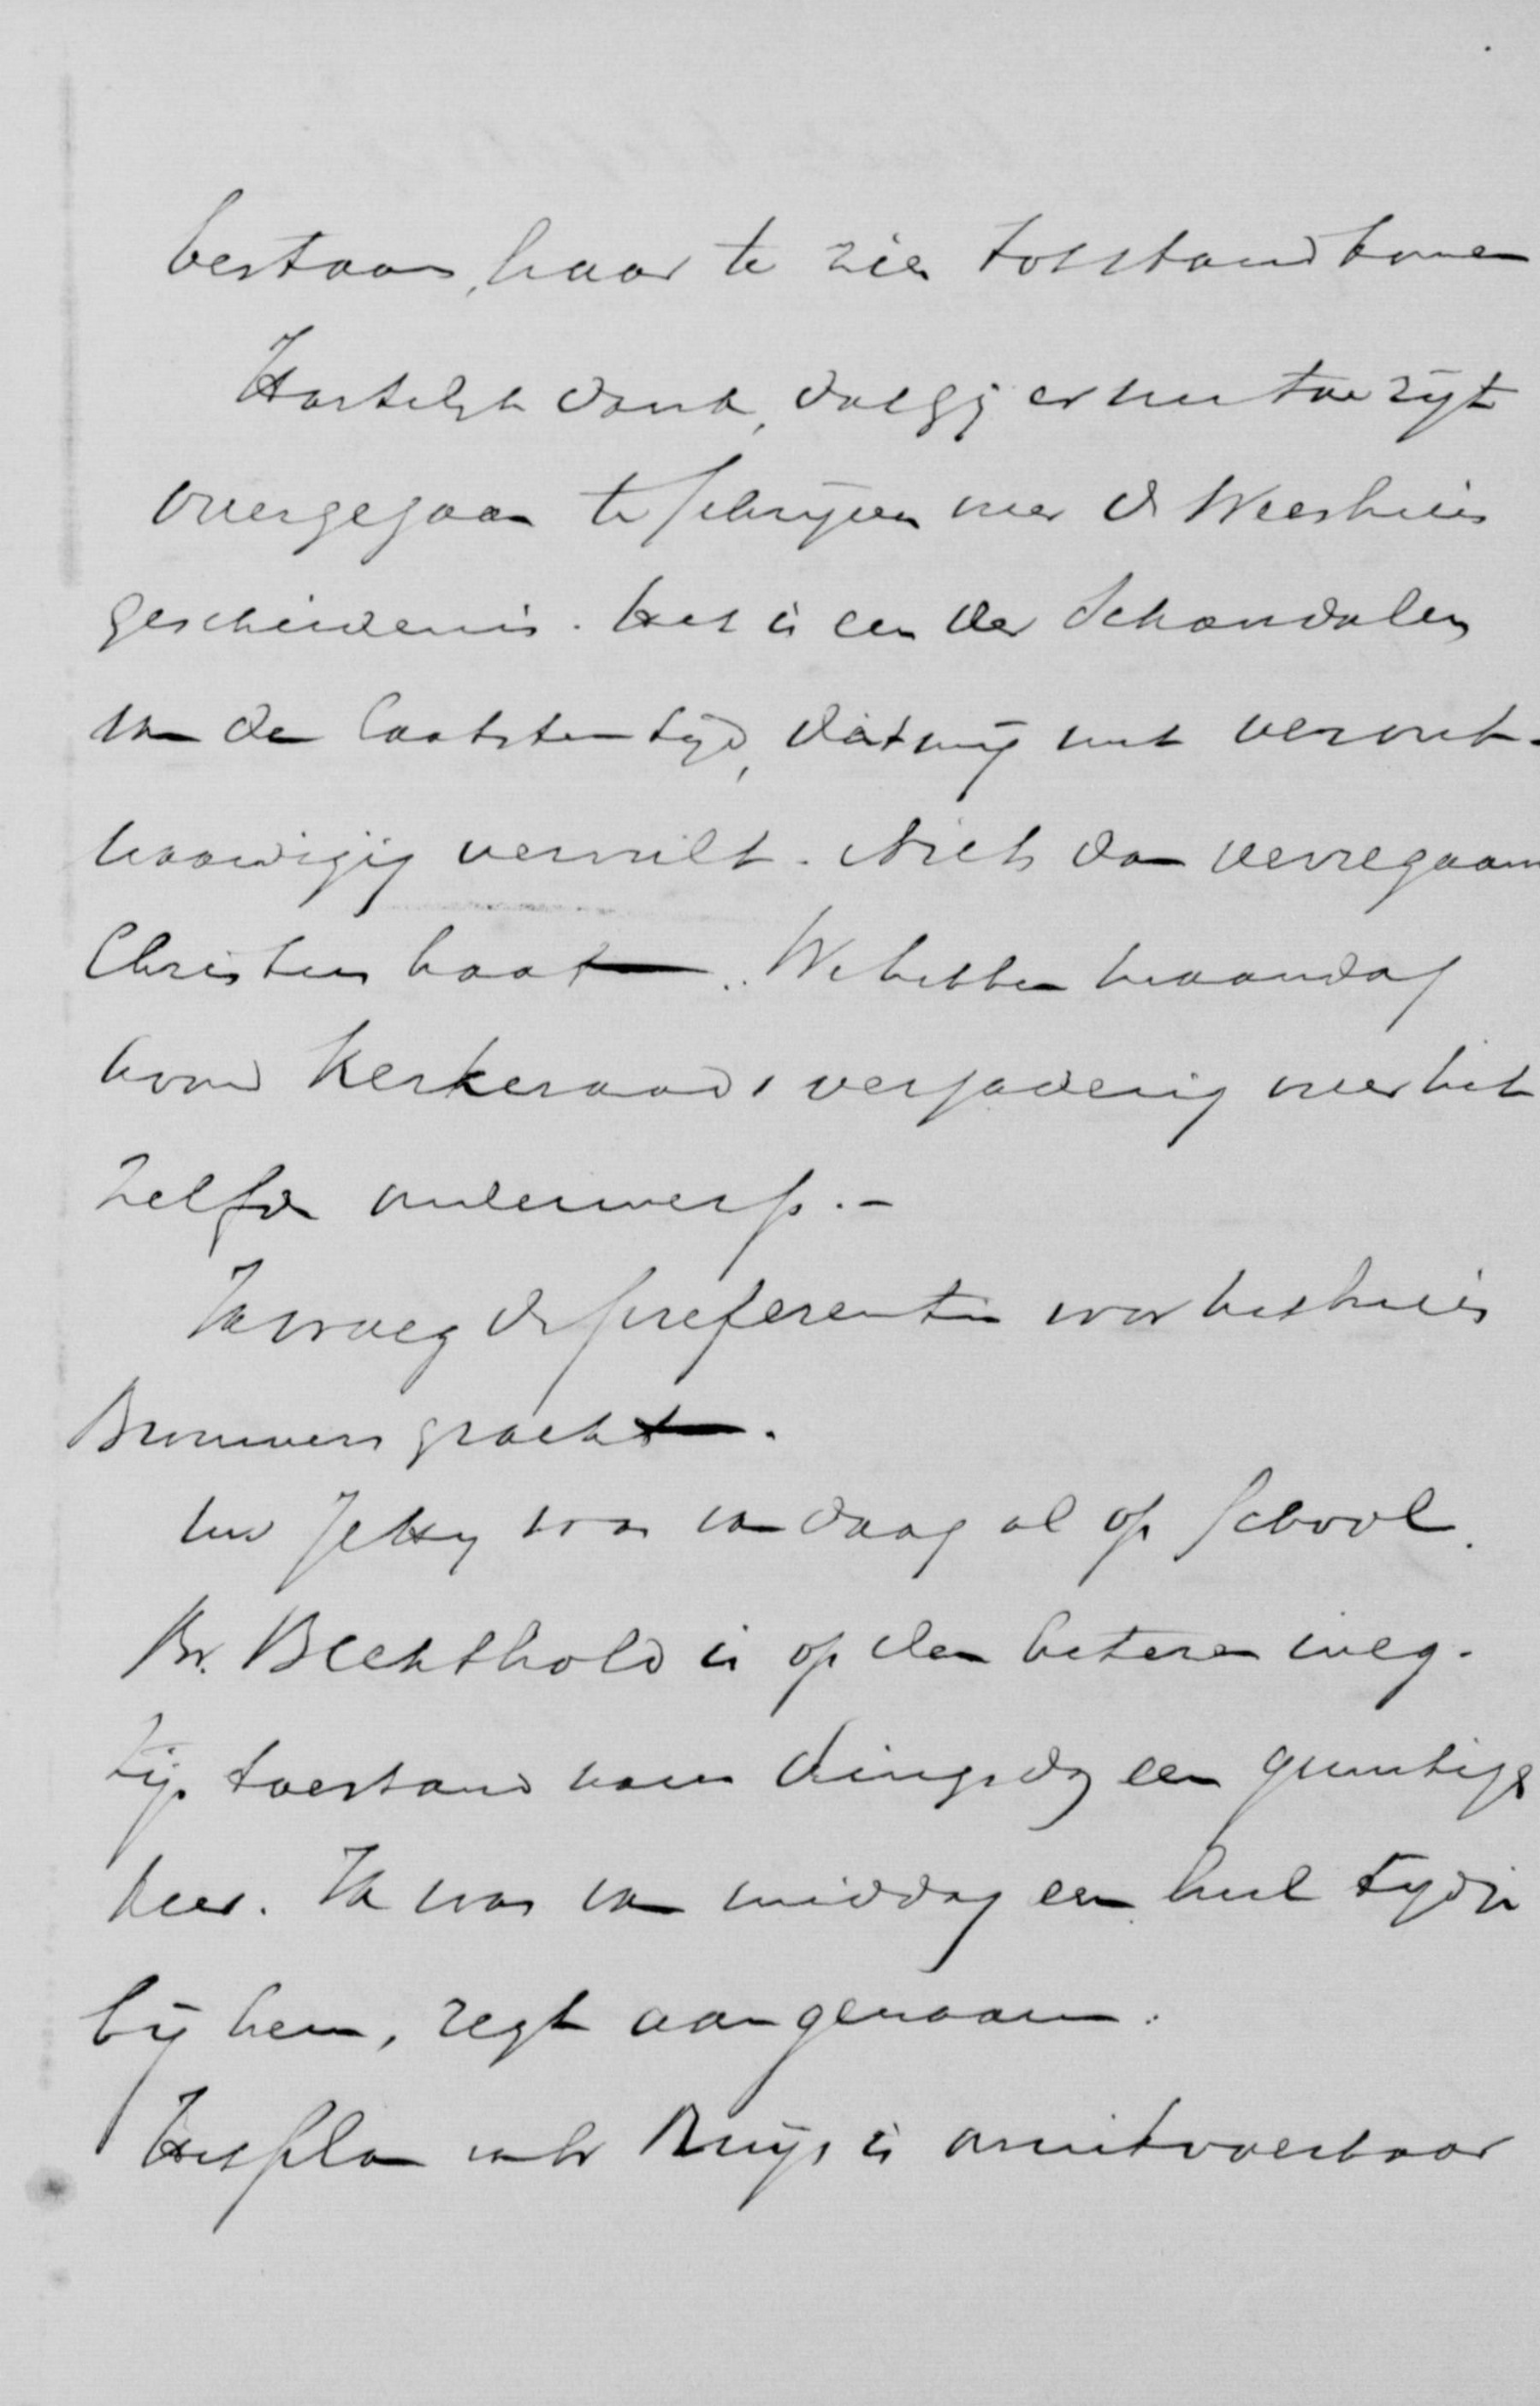 bestaan, haar te zien tot stand komen
Hartelijk dank, dat gij er nu toe zijt
overgegaan te schrijven over de Weeshuis
geschiedenis. Het is een der schandalen
van den laatsten tijd, dat mij met veront-
waardiging vervult. Niets dan verregaan
Christus haat. We hebben maandag
avond Kerkeraads vergadering over het
zelfde onderwerp.-
Ik vroeg de preferentie voor het huis
Brouwersgracht.
Uw Jetty was van daag al op school.
Br. Bechthold is op den beteren weg.
Zijn toestand nam dingsdag een gunstige
keer. Ik was van middag een heel tijdje
bij hem, regt aangenaam.
Het plan van br Buijs is onuitvoerbaar